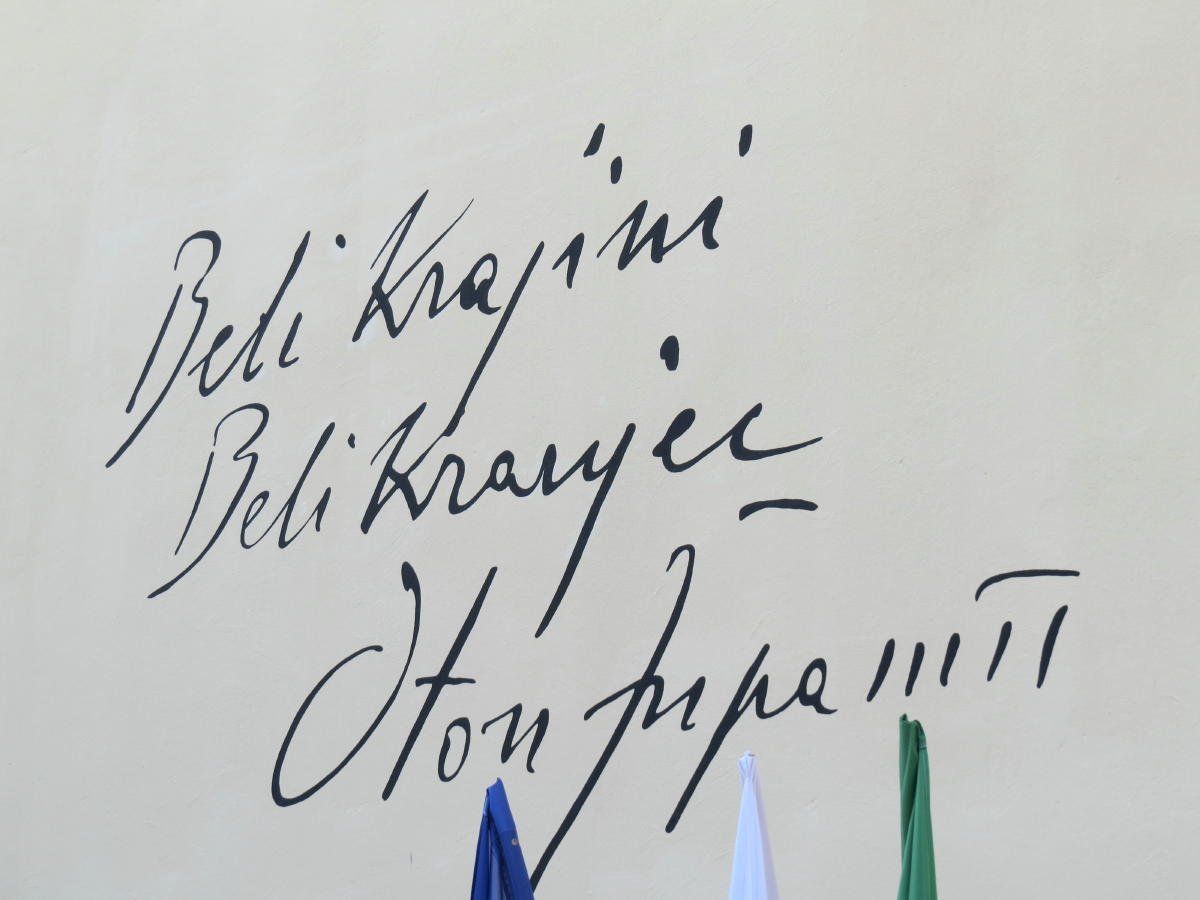 Beli Krajini
Beli Kranjec
Oton Župančič